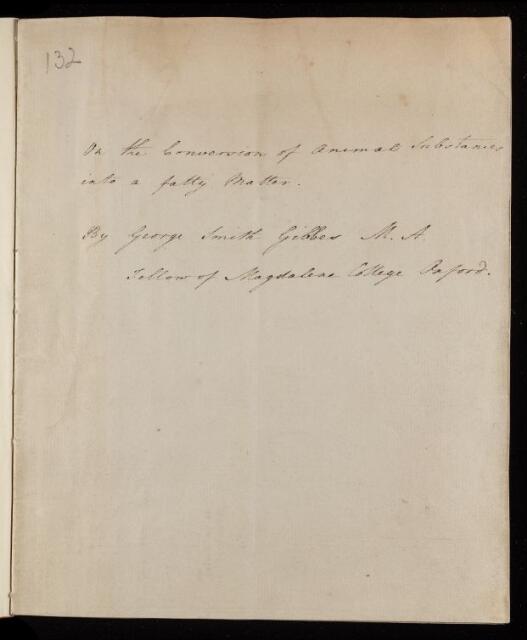 132
On the Conversion of Animal Substances
into a fatty Matter.
By George Smith Gibbes M. A.
Fellow of Magdalene College Oxford.